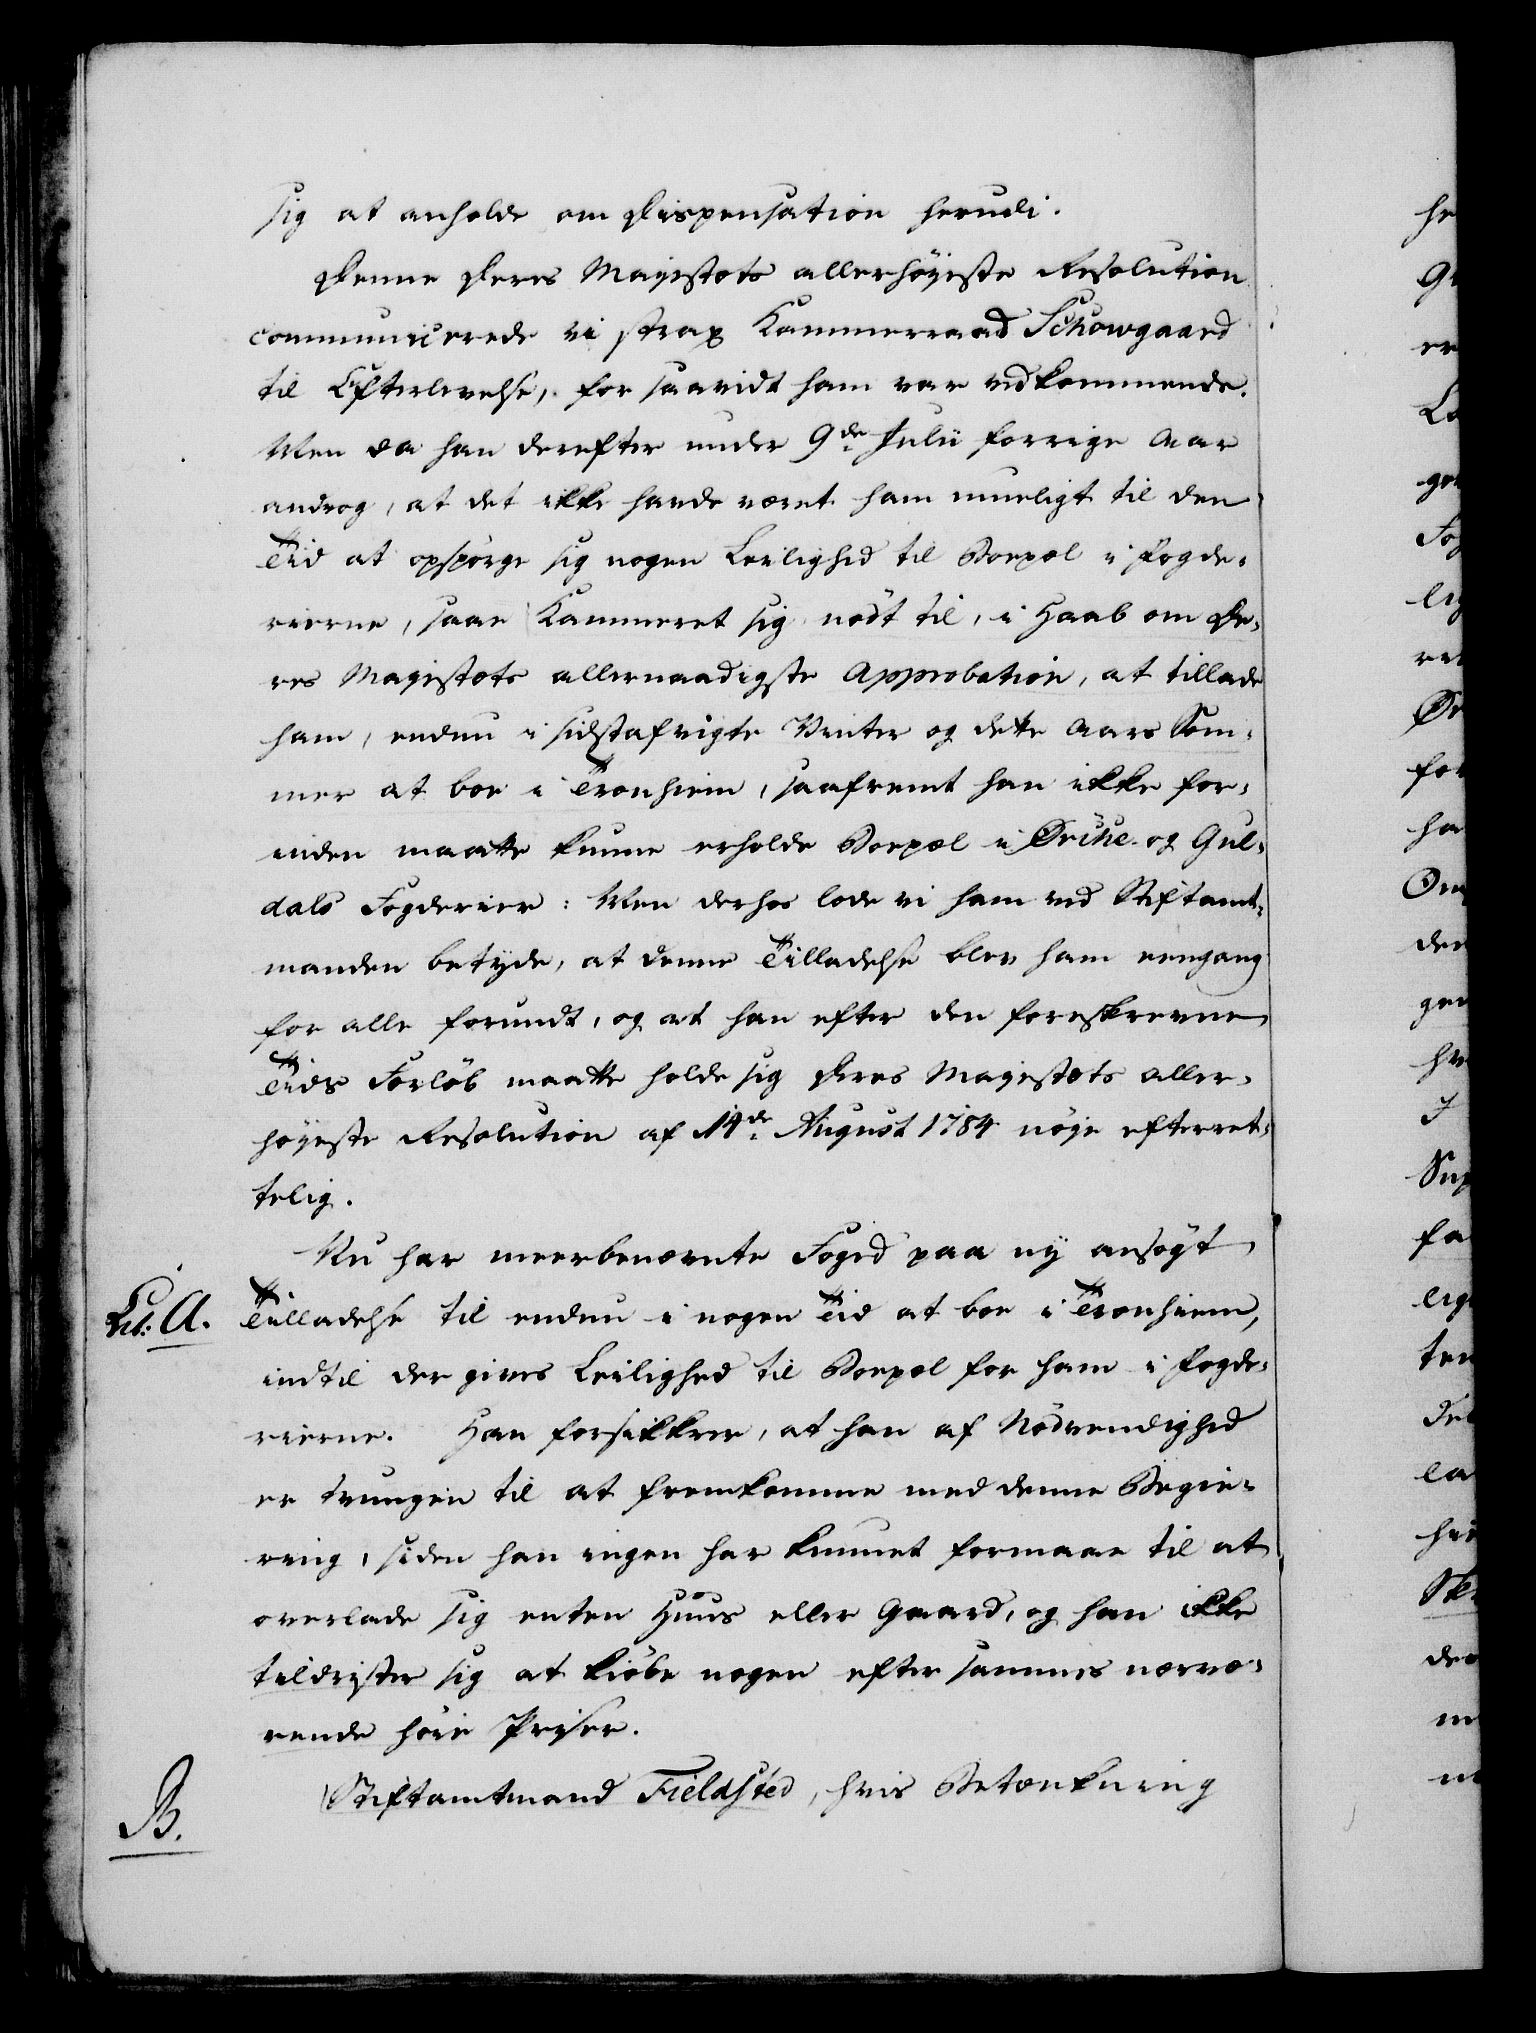 sig at anholde om Dispensation herudi.
Denne Deres Majestæts allerhöyeste Resolution
communicerede vi strax Kammerraad Schowgaard
til Efterlevelse, for saavidt ham var vedkommende.
Men da han derefter under 9de Julii forrige Aar
androg, at det ikke havde været ham mueligt til den
Tid at opspörge sig nogen Leilighed til Boepæl i Fogde-
rierne, saae Kammeret sig nödt til, i Haab om De-
res Majestæts allernaadigste Approbation, at tillade
ham, endnu i sidstafvigte Vinter og dette Aars Som-
mer at boe i Tronhiem, saafremt han ikke for-
inden maatte kunne erholde Boepæl i Örke- og Gul-
dals Fogderier: Men derhos lode vi ham ved Stiftamt-
manden betyde, at denne Tilladelse blev ham eengang
for alle forundt, og at han efter den foreskrevne
Tids Forlöb maatte holde sig Deres Majestæts aller-
höyeste Resolution af 14de August 1784 nöje efterret-
telig.
Nu har meerbenævnte Foged paa ny ansögt
Lit: A.
Tilladelse til endnu i nogen Tid at boe i Tronhiem,
indtil der gives Leilighed til Boepæl for ham i Fogde-
rierne. Han forsikkrer, at han af Nödvendighed
er tvungen til at fremkomme med denne Begie-
ring, siden han ingen har kunnet formaae til at
overlade sig enten Huus eller Gaard, og han ikke
tildrister sig at kiöbe nogen efter sammes nærvæ-
rende höie Priser.
B.
Stiftamtmand Fieldsted, hvis Betænkning